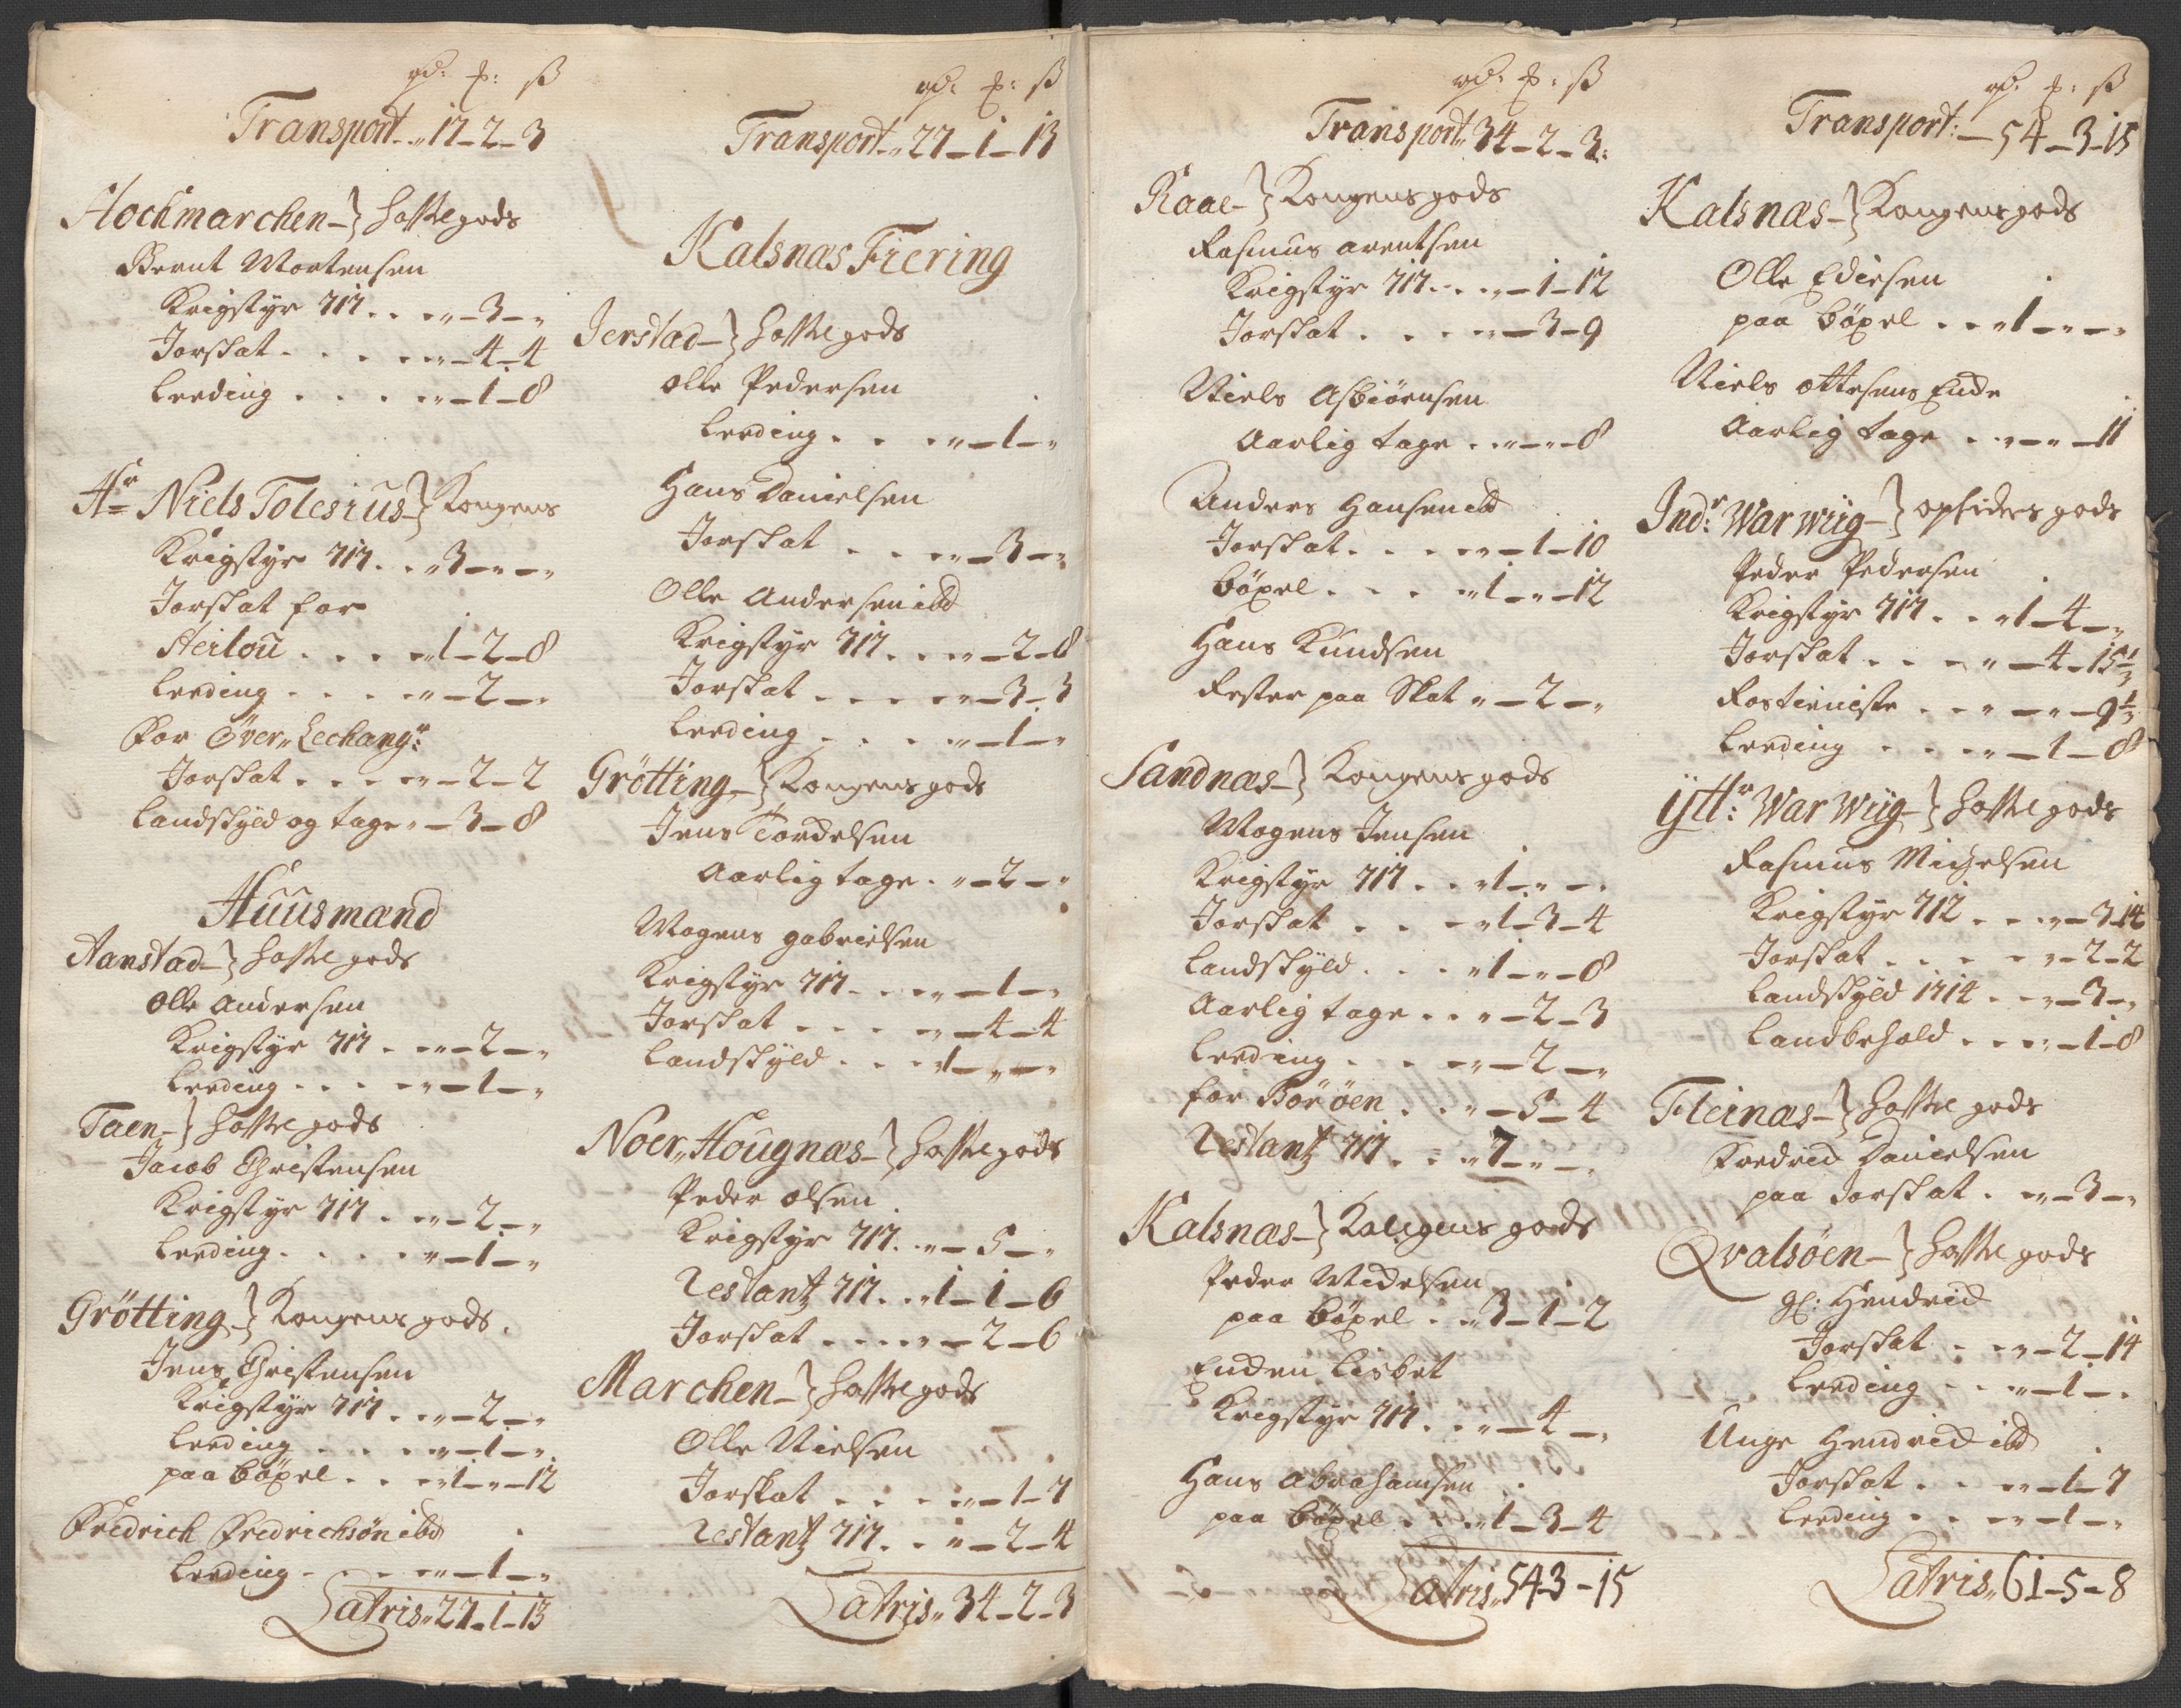 rd: ƺ: ß
Transport „ 17 - 2 - 3
Hochmarchen } Hosstelgods
Bernt Mortensen
Krigstyr 717 . . „ - 3 - „
Jorskat . . . „ - 4 - 4
Leeding . . . „ - 1 - 8
Hr Niels Tolesius } Kongens
Krigstyr 717 . . „ 3 - „ - „
Jorskat for
Heilou . . . „ 1 - 2 - 8
Leeding . . . „ - 2 - „
For Över„ Lechangr:
Jorskat . . . „ - 2 - 2
Landskyld og tage „ - 3 - 8
Huusmænd
Aanstad } gods
Olle Andersen
Krigstyr 717 . „ - 2 - „
Leeding . . . „ - 1 - „
Taen } gods
Jacob Christensen
Krigstyr 717 . „ - 2 - „
Leeding . . . „ - 1 - „
Grötting } Kongens gods
Jens Christensen
Krigstyr 717 . . „ - 2 - „
Leeding . . . „ - 1 - „
paa böxel . . „ 1 - „ - 12
Fredrich Fredrichsön ibd
Leeding . . . „ - 1 - „
Latris „ 27 - 1 - 13
rd: ƺ: ß
Transport „ 27 - 1 - 13
Kalsnæs Fiering
Jerstad } gods
Olle Pedersen
Leeding . . . „ - 1 - „
Hans Danielsen
Jorskat . . . „ - 3 - „
Olle Andersen ibd
Krigstyr 717 . . . „ - 2 - 8
Jorskat . . . „ - 3 - 3
Leeding . . . „ - 1 - „
Grötting } Kongens gods
Jens Tordelsen
Aarlig tage . „ - 2 - „
Mogens Gabrielsen
Krigstyr 717 . . . „ - 1 - „
Jorskat . . . „ - 4 - 4
Landskyld . . . „ 1 - „ - „
Noer„ Hougnæs } gods
Peder Olsen
Krigstyr 717 . „ - 5 - „
Restantz 717 . . „ 1 - 1 - 6
Jorskat . . . „ - 2 - 6
Marchen } gods
Olle Nielsen
Jorskat . . . „ - 1 - 7
Restantz 717 . . „ - 2 - 4
Latris „ 34 - 2 - 3
rd: ƺ: ß
Transport „ 34 - 2 - 3:
Raae } Kongens gods
Rasmus Arentsen
Krigstyr 717 . . . „ - 1 - 12
Jorskat . . . „ - 3 - 9
Niels Asbiörnsen
Aarlig tage . . „ - „ - 8
Anders Hansen ibd
Jorskat . . . „ - 1 - 10
böxel . . . „ 1 - „ - 12
Hans Knudsen
Rester paa Skat „ - 2 - „
Sandnæs } Kongens gods
Mogens Jensen
Krigstyr 717 . . „ 1 - „ - „
Jorskat . . . „ 1 - 3 - 4
Landskyld . . . „ 1 - „ - 8
Aarlig tage . . „ - 2 - 3
Leeding . . . „ - 2 - „
for Böröen . . „ - 5 - 4
Restantz 717 . . „ 7 - „ - „
Kalsnæs } Kongens gods
Peder
paa böxel . „ 3 - 1 - 2
Enden Lisbet
Krigstyr 717 . . „ - 4 - „
Hans Abrahamsen
paa böxel . . „ 1 - 3 - 4
Latris „ 54 - 3 - 15
rd: ƺ: ß
Transport: - 54 - 3 - 15
Kalsnæs } Kongens gods
Olle Ediesen
paa böxel . . „ 1 - „ - „
Niels Ottesens Ende
Aarlig tage . „ - „ - 11
Indr: Warwiig } opsiders gods
Peder Pedersen
Krigstyr 717 . . „ 1 - 4 - „
Jorskat . . . „ - 4 - 15½
Rostieniste . . . „ - „ - 9½
Leeding . . . „ - 1 - 8
Ÿttr: Warwiig } gods
Rasmus Michelsen
Krigstyr 712 . . . „ - 3 - 14
Jorskat . . . „ - 2 - 2
Landskyld 1714 . . „ - 3 - „
Landbehold . . . „ - 1 - 8
Fleinæs } gods
Fredrich Danielsen
paa Jorskat . „ - 3 - „
Qvalsöen } gods
gl: Hendrich
Jorskat . . „ - 2 - 14
Leeding . . . „ - 1 - „
Unge Hendrich ibd
Jorskat . . „ - 1 - 7
Leeding . . . „ - 1 - „
Latris „ 61 - 5 - 8